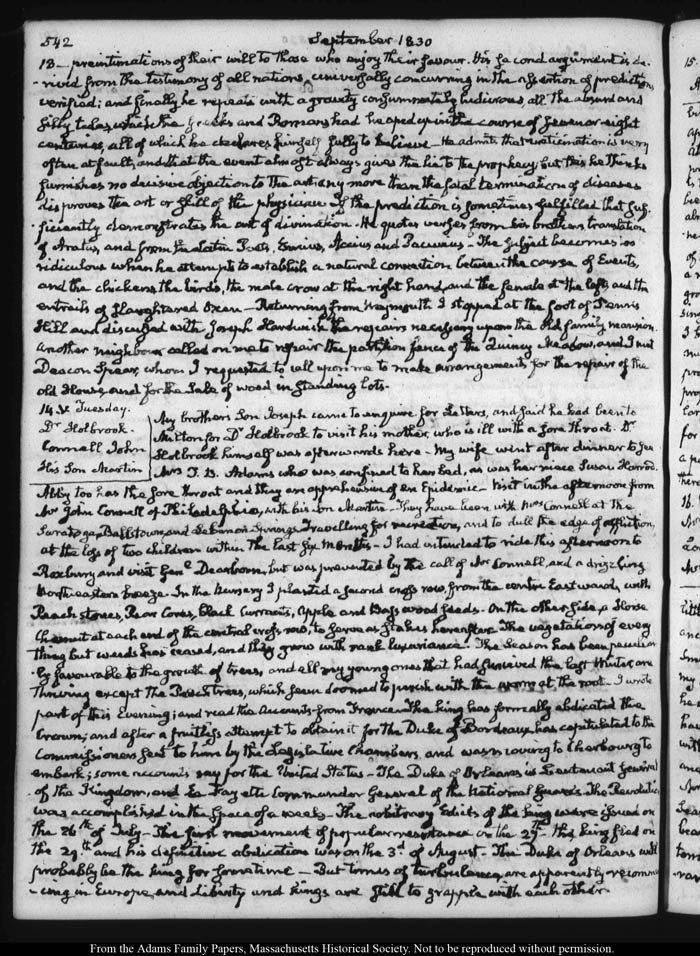 542 September 1830
13 - preintimations of their will to those who enjoy their favour. His second argument is de-
-rived from the testimony of all nations, universally concurring in the assertion of predictions
verified; and finally he repeats with a gravity consummately ludicrous all the absurd and
silly tales which the Greeks and Romans had heaped up in the course of seven or eight
centuries, all of which he declares himself fully to believe - He admits that vaticination is very
often at fault, and that the event almost always gives the lie to the prophecy; but this he thinks
furnishes no decisive objection to the art any more than the fatal termination of diseases
disproves the art or skill of the physician. If the prediction is sometimes fulfilled that suf-
-ficiently demonstrates the art of divination - He quotes verses from his brothers translation
of Aratus, and from the Latin Poets, Ennius, Accius and Pacuvius - The subject becomes so
ridiculous when he attempts to establish a natural connection between the course of Events,
and the chickens, the birds, the male crow at the right hand, and the female at the left, and the
entrails of slaughtered Oxen - Returning from Weymouth I stopped at the foot of Penns
Hill and discussed with Joseph Hardwick the repairs necessary upon the old family mansion.
Another neighbour called on me to repair the partition fence of the Quincy Meadow, and I met
Deacon Spear, whom I requested to call upon me to make arrangements for the repair of the
old House, and for the Sale of wood in standing lots.
14 V. Tuesday. My brother's Son Joseph came to enquire for Letters, and said he had been to
Dr Holbrook. Milton for Dr Holbrook to visit his mother, who is ill with a sore throat. Dr
Connell John Holbrook himself was afterwards here - My wife went after dinner to see
His Son Martin Mrs T. B. Adams who was confined to her bed, as was her niece Susan Harrod.
Abby too has the sore throat and they are apprehensive of an Epidemic - Visit in the afternoon from
Mr John Connell of Philadelphia, with his son Martin. They have been with Mrs Connell at the
Saratoga, Ballstown, and Lebanon Springs Travelling for recreation, and to dull the edge of affliction,
at the loss of two children within the last six Months - I had intended to ride this afternoon to
Roxbury and visit Genl Dearborn, but was prevented by the call of Mr Connell, and a drizzling
North eastern breeze. In the Nursery I planted a second cross row, from the centre Eastward, with
Peach stones, Pear Cores, Black Currants, Apple and Bass wood seeds. On the other side, a Horse
Chesnut at each end of the central cross row, to serve as stakes hereafter. The vegetation of every
thing but weeds has ceased, and they grow with rank luxuriance. The Season has been peculiar-
-ly favourable to the growth of trees, and all my young ones that had survived the last Winter, are
thriving except the Peach trees, which seem doomed to perish with the worm at the root - I wrote
part of this Evening; and read the Accounts from France - The king has formally abdicated the
Crown; and after a fruitless attempt to obtain it for the Duke of Bordeaux has capitulated to the
Commissioners sent to him by the Legislative Chambers, and was moving to Cherbourg to
embark; some accounts say for the United States - The Duke of Orleans is Lieutenant General
of the Kingdom, and La Fayette Commander General of the National Guards. The Revolution
was accomplished in the space of a week - The arbitrary Edicts of the king were issued on
the 26th of July - The first movement of popular resistance on the 27th The king fled on
the 29th and his definitive abdication was on the 3d of August - The Duke of Orleans will
probably be the king for some time - But times of turbulence are apparently recommen-
-cing in Europe, and Liberty and kings are still to grapple with each other.
From the Adams Family Papers, Massachusetts Historical Society. Not to be reproduced without permission.